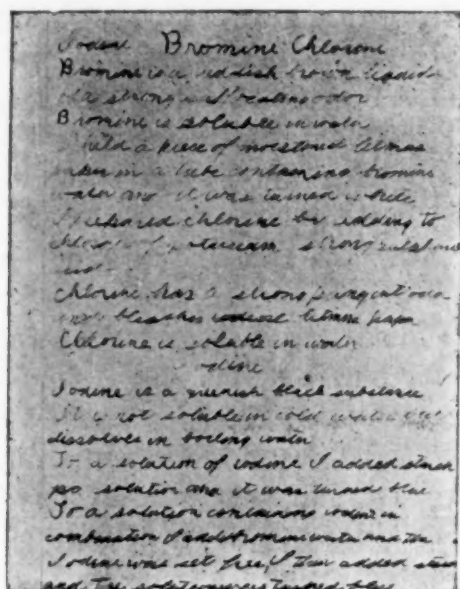 Iodine Bromine Chlorine
Bromine is a reddish brown liquid
of a strong odor
Bromine is soluble in water
held a piece of moistened litmus
paper in a tube containing bromine
water and it was turned white
I prepared chlorine by adding to
strong
Chlorine has a strong pungent odor
bleaches litmus paper
Chlorine is soluble in water
Iodine
Iodine is a black substance
It is not soluble in cold water
dissolves in boiling water
To a solution of iodine I added starch
solution and it was turned blue
To a solution containing iodine in
combination I added bromine water and the
Iodine was set free, I then added starch
and the solution was turned blue